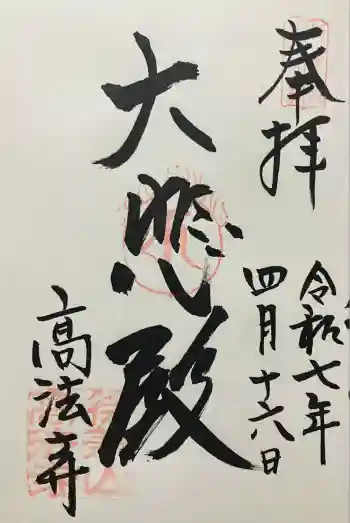 奉拝
令和七年
四月十六日
大悲殿
高法寺